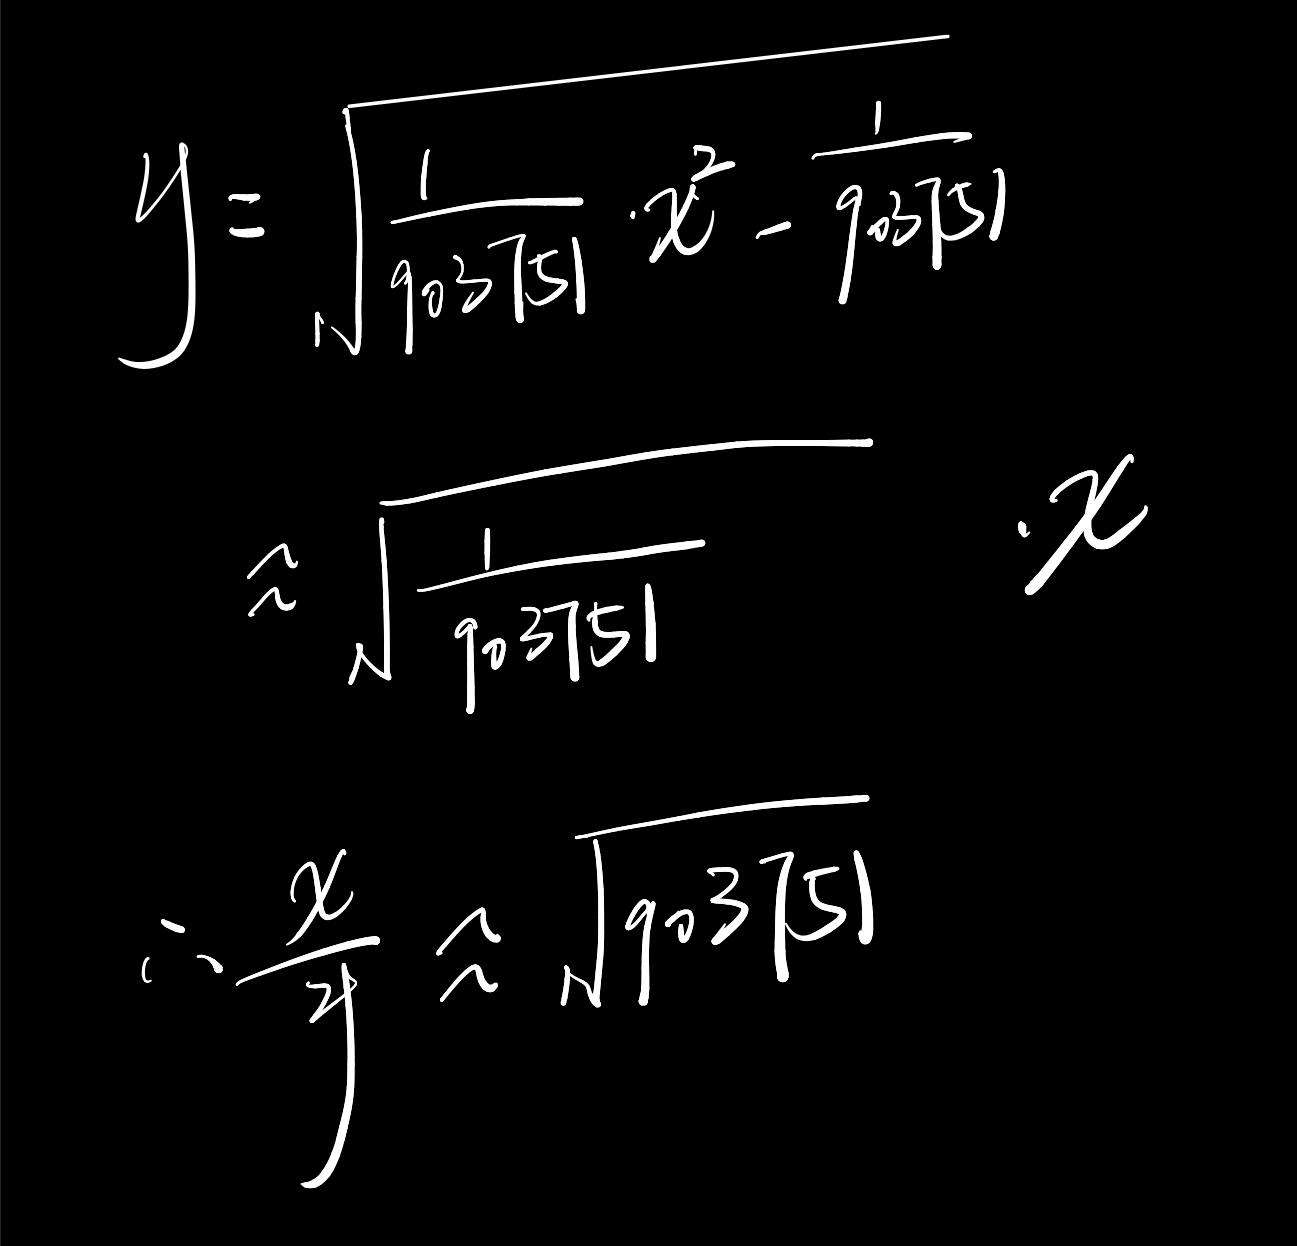 y = √(1/903751 · x² - 1/903751)
≈ √(1/903751) · x
∴ x/y ≈ √903751